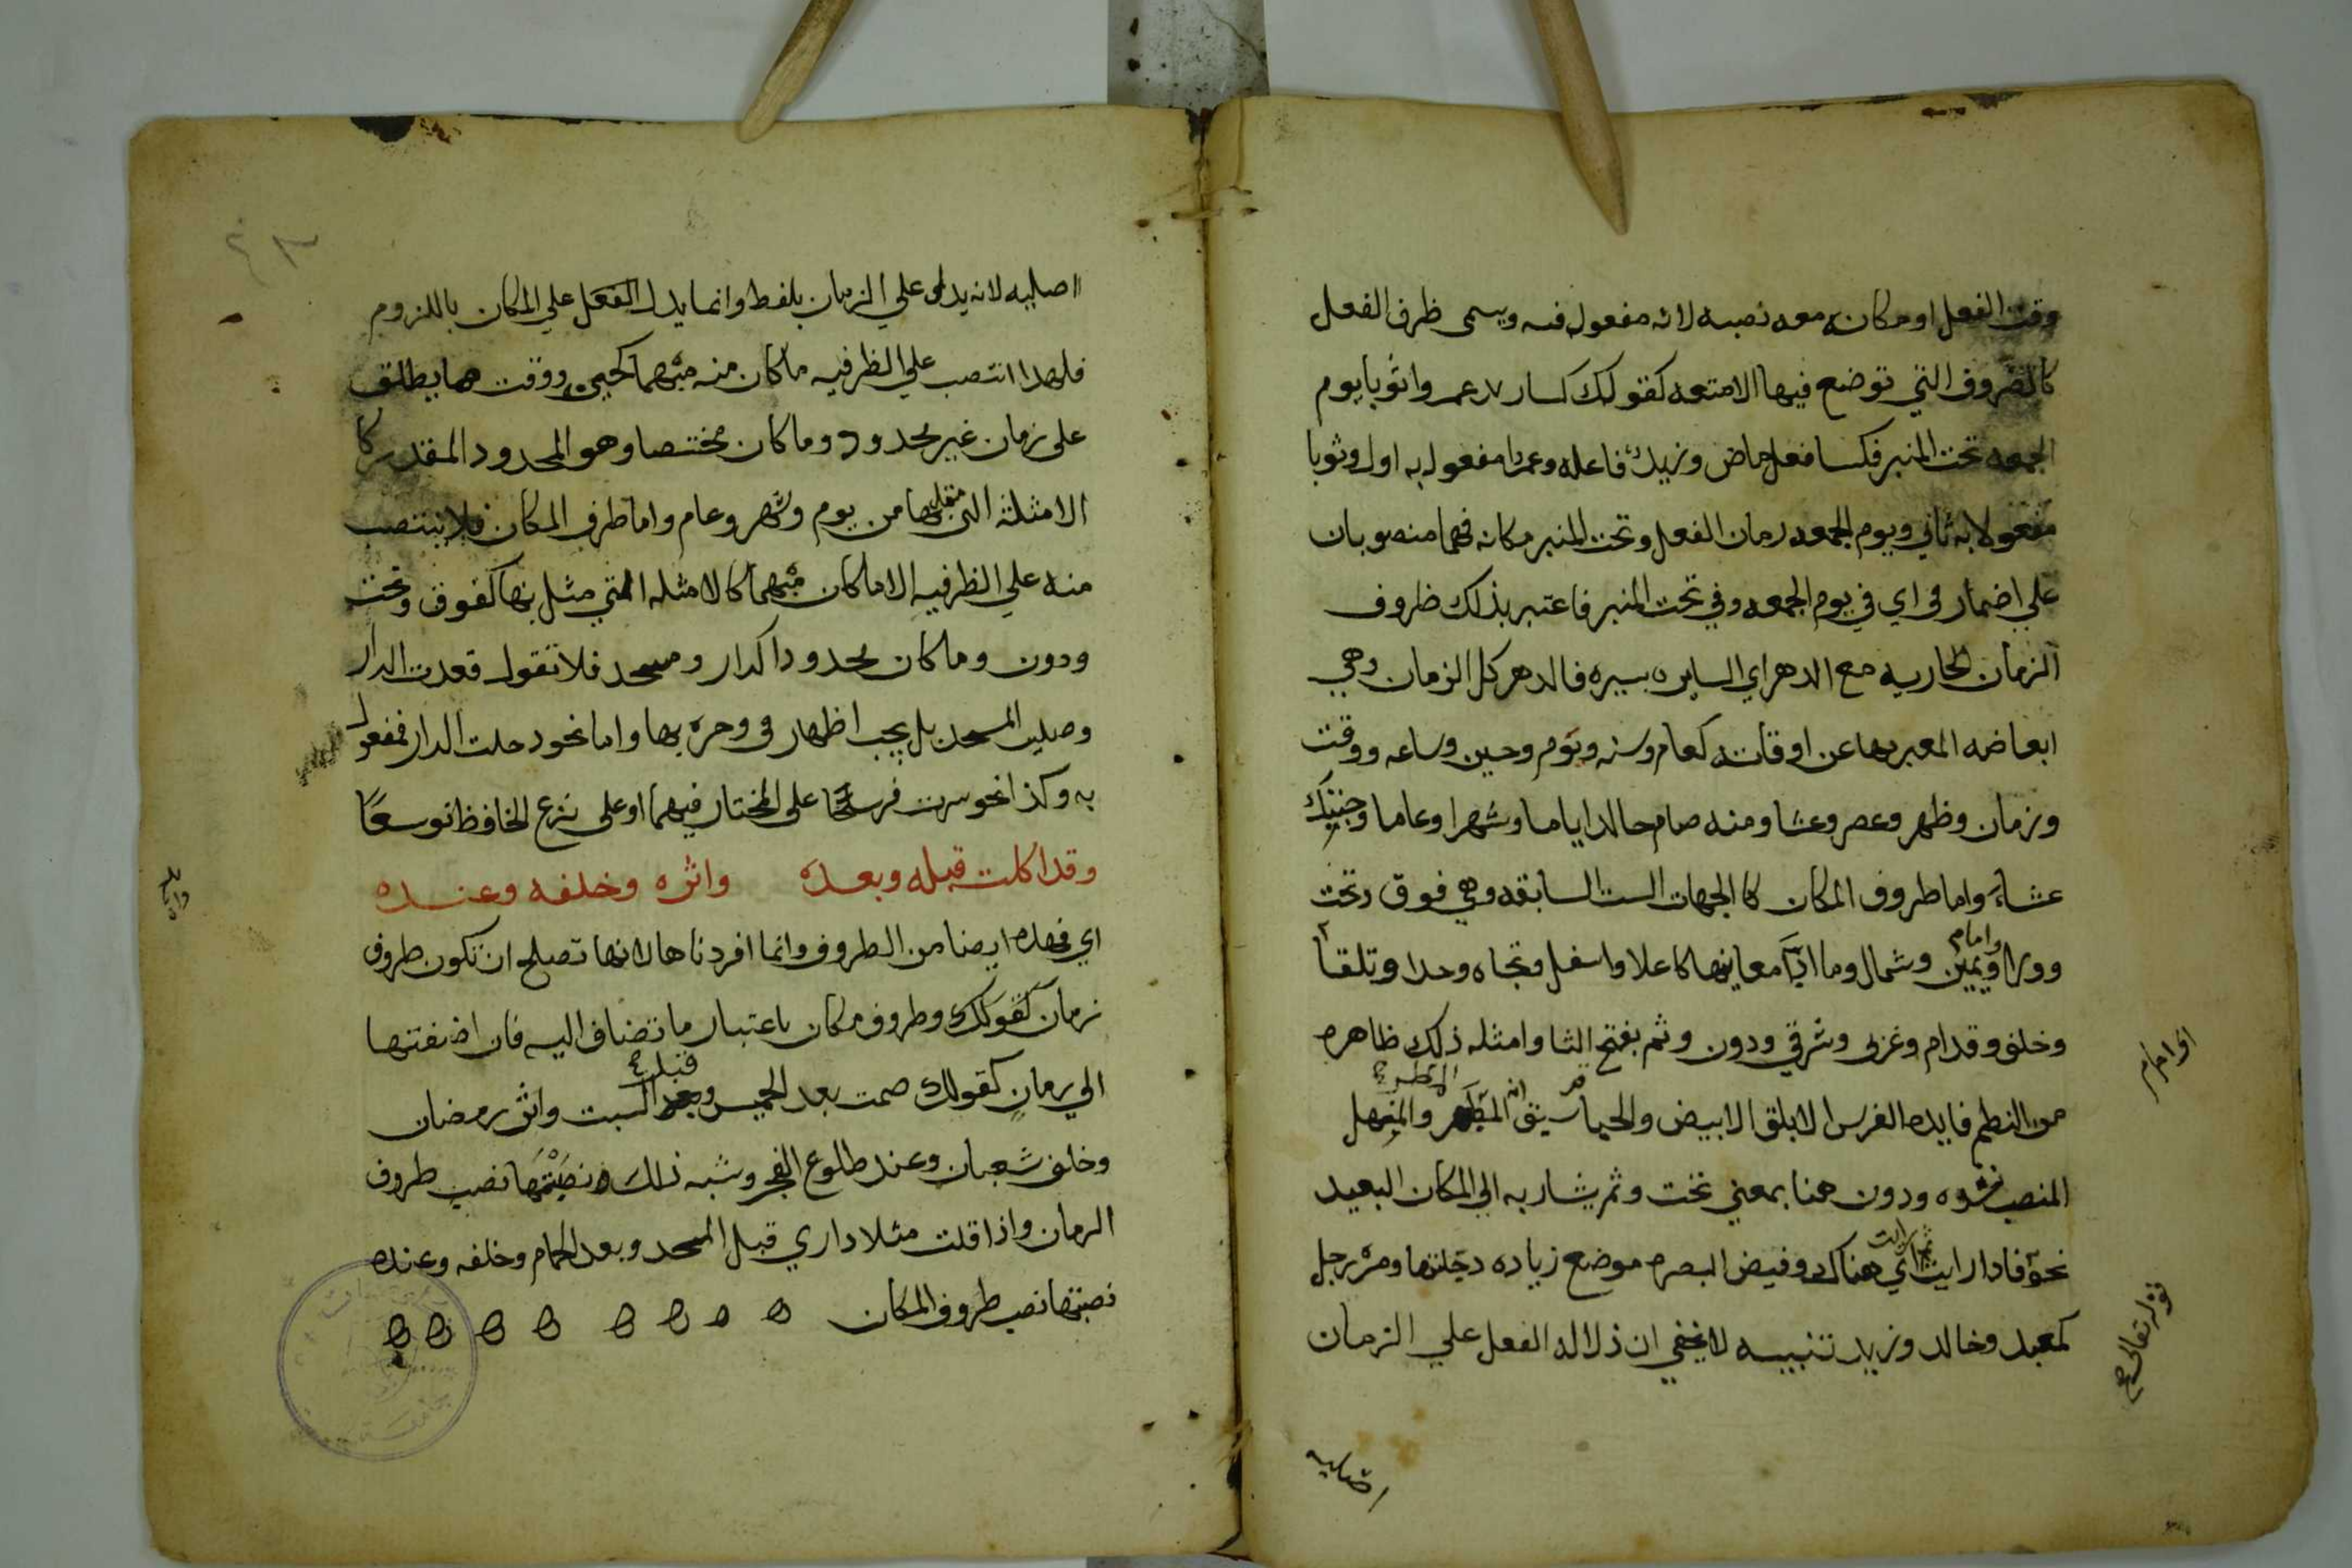 وقت الفعل او مكانه معه نصبه لانه مفعول فيه ويسمى ظرف الفعل
كالضروف التي توضع فيها الامتعه كقولك كسا زيد عمروا ثوبا يوم
الجمعه تحت المنبر فكسا فعل ماض وزيد فاعله وعمروا مفعول به اول وثوبا
مفعولا به ثاني ويوم الجمعه زمان الفعل وتحت المنبر مكانه فهما منصوبان
علي اضمار في اي في يوم الجمعه وفي تحت المنبر فاعتبر بذلك ظروف
الزمان الجاريه مع الدهر اي السايره بسيره فالدهر كل الزمان وهي
ابعاضه المعبر بها عن اوقاته كعام وسنه ويوم وحين وساعه ووقت
وزمان وظهر وعصر وعشا ومنه صام خالد اياما وشهرا وعاما وجئتك
عشاء واما ظروف المكان كالجهات الست السابقه وهي فوق وتحت
وورا وامام ويمين وشمال وما ادّا معاينها كاعلا واسفل وتجاه وحدا وتلقا
وخلف وقدام وغربي وشرقي ودون وثم بفتح الثا وامثله ذلك ظاهره
من النظم فايده الفرس الابلق الابيض والحيا المطر والمنهل
المنصب ودون هنا بمعني تحت وثم يشار به الي المكان البعيد
نحو فاذا رايت ثم رايت اي هناك وفيض البصره موضع زياده دجلتها ومر رجل
كمعبد وخالد وزيد تنبيه لا يخفي ان دلاله الفعل علي الزمان
اي امام
قوله تعالى صح
اصليه
اصليه لانه يدل علي الزمان بلفظ وانما يدل الفعل علي المكان باللزوم
فلهذا انتصب علي الظرفيه ما كان منه مبهما كحين ووقت مما يطلق
على زمان غير محدود وما كان مختصا وهو المحدود المقدر كا
الامثلة التي مثلها من يوم وشهر وعام واما ظرف المكان فلا ينتصب
منه علي الظرفيه الا ما كان مبهما كالامثله التي مثل بها كفوق وتحت
ودون وما كان محدودا كدار ومسجد فلا تقول قعدت الدار
وصليت المسجد بل يجب اظهار في وجره بها واما نحو دخلت الدار فمفعول
به وكذا نحو سرت فرسخا على المختار فيهما او على نزع الخافظ توسعًا
وقد اكلت قبله وبعده واثره وخلفه وعنده
اي فهذه ايضا من الظروف وانما افردناها لانها تصلح ان تكون ظروف
زمان كقولك وظروف مكان باعتبار ما تضاف اليه فان اضفتها
الي زمان كقولك صمت بعد الخميس وقبل السبت واثر رمضان
وخلف شعبان وعند طلوع الفجر وشبه ذلك نصبتها نصب ظروف
الزمان واذا قلت مثلا داري قبل المسجد وبعد الحمام وخلفه وعنده
نصبتها نصب ظروف المكان